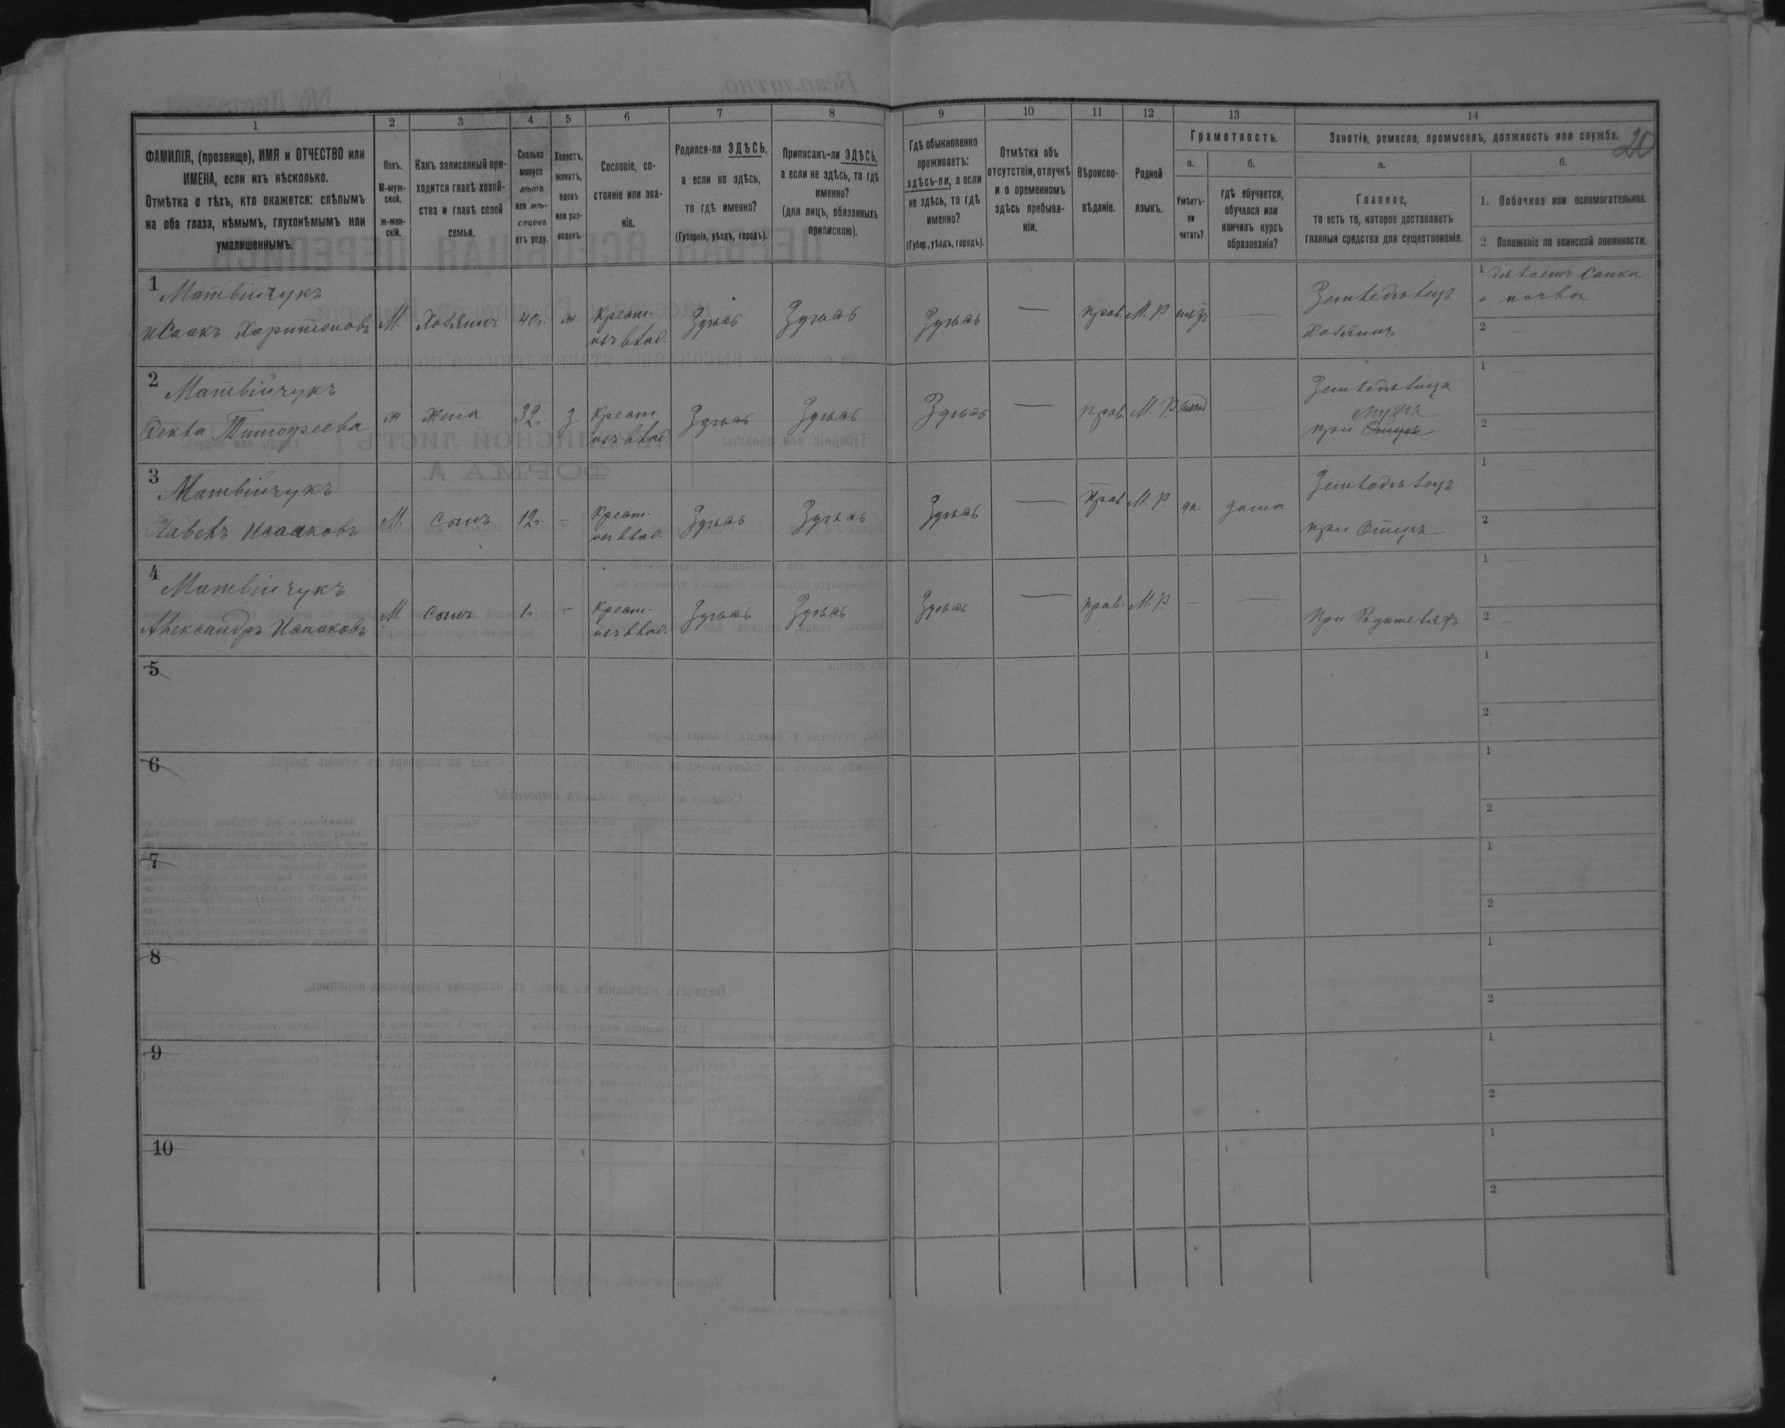 1
2
3
4
5
6
7
8
9
10
11
12
13
14
20
ФАМИЛІЯ, (прозвище), ИМЯ и ОТЧЕСТВО или
ИМЕНА, если ихъ нѣсколько.
Отмѣтка о тѣхъ, кто окажется: слѣпымъ
на оба глаза, нѣмымъ, глухонѣмымъ или
умалишеннымъ.
Полъ.
М-муж-
ской.
Ж-жен-
скій.
Какъ записанный при-
ходится главѣ хозяй-
ства и главѣ своей
семьи.
Сколько
минуло
лѣтъ
или мѣ-
сяцевъ
отъ роду.
Холостъ,
женатъ,
вдовъ
или раз-
веденъ.
Сословіе, со-
стояніе или зва-
ніе.
Родился-ли ЗДѢСЬ,
а если не здѣсь,
то гдѣ именно?
(Губернія, уѣздъ, городъ).
Приписанъ-ли ЗДѢСЬ,
а если не здѣсь, то гдѣ
именно?
(для лицъ, обязанныхъ
припискою).
Гдѣ обыкновенно
проживаетъ:
здѣсь-ли, а если
не здѣсь, то гдѣ
именно?
(Губер., уѣздъ, городъ).
Отмѣтка объ
отсутствіи, отлучкѣ
и о временномъ
здѣсь пребыва-
ніи.
Вѣроиспо-
вѣданіе.
Родной
языкъ.
Грамотность.
а.
Умѣетъ-
ли
читать?
б.
гдѣ обучается,
обучался или
кончилъ курсъ
образованія?
Занятіе, ремесло, промыселъ, должность или служба.
а.
Главное,
то есть то, которое доставляетъ
главныя средства для существованія.
б.
1. Побочное или вспомогательное.
2 Положеніе по воинской повинности.
1 Матвійчукъ
Исаакъ Харитоновъ М. Хозяинъ 40 г. ж. Крест. изъ влад. Здѣсь Здѣсь Здѣсь — прав. М. Р. — Земледѣлецъ
Хозяинъ
1 дѣлаетъ санки
2 —
2 Матвійчукъ
Фекла Тимофеева ж Жена 32 г. з. Крест. изъ влад. Здѣсь Здѣсь Здѣсь — прав. М. Р. Земледѣлица
при мужѣ
1 —
2 —
3 Матвійчукъ
Павелъ Исааковъ М. Сынъ 12 г. — Крест. изъ влад. Здѣсь Здѣсь Здѣсь — Прав. М. Р. да дома Земледѣлецъ
при Отцѣ
1 —
2 —
4 Матвійчукъ
Александръ Исааковъ М Сынъ 1 г. — Крест. изъ влад. Здѣсь Здѣсь Здѣсь — прав. М. Р. — — При Родителяхъ
1 —
2 —
5
1
2
6
1
2
7
1
2
8
1
2
9
1
2
10
1
2